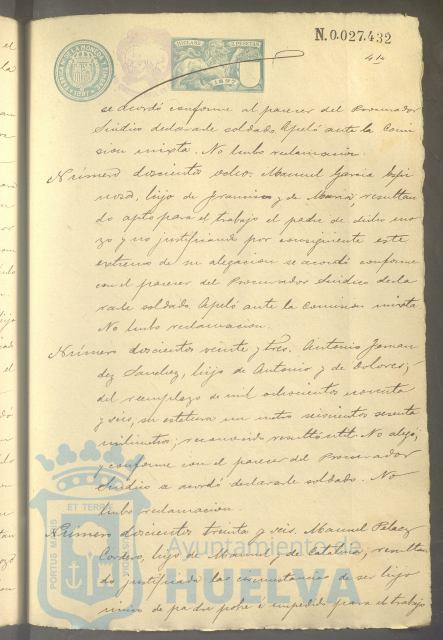 N.0.027.432
1897
se acordó conforme al parecer del Procurador
Síndico declararle soldado. Apeló ante la Comi
sion mixta. No hubo reclamacion.
Número doscientos ocho. Manuel Garcia Espi
nosa, hijo de Francisco y de Maria resultan
do apto para el trabajo el padre de dicho mo
zo y no justificando por consiguiente este
extremo de su alegacion se acordó conforme
con el parecer del Procurador Síndico decla
rarle soldado. Apeló ante la Comision mixta
No hubo reclamacion.
Número doscientos veinte y tres. Antonio
dez Sanchez, hijo de Antonio y de Dolores,
del reemplazo de mil ochocientos noventa
y seis, su estatura un metro seiscientos sesenta
milimetros; reconocido resultó util. No alegó,
y conforme con el parecer del Procurador
Síndico se acordó declararle soldado. No
hubo reclamacion.
Número doscientos treinta y seis. Manuel Pelaez
Cordero, hijo de Manuel y de Catalina; resultan
do justificada las circunstancias de ser hijo
unico de padre pobre e impedido para el trabajo
PORTUS MARIS ET TERRAE
Ayuntamiento de
HUELVA